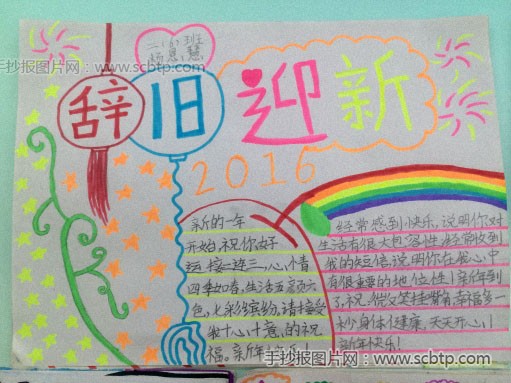 手抄报图片网：www.scbtp.com
二(6)班
杨思慧
手抄报图片网：www.scbtp.com
辞旧迎新
2016
新的一年
开始，祝你好
运接二连三，心情
四季如春，生活五颜六
色，七彩缤纷，请接受
我十心十意的祝
福。新年
经常感到快乐，说明你对
生活有很大包容性；经常收到
我的短信，说明你在我心中
有很重要的地位性！新年到
了，祝你笑挂嘴
幸福多一
秒，身体健康，天天开心！
新年快乐！
手抄报图片网：www.scbtp.com